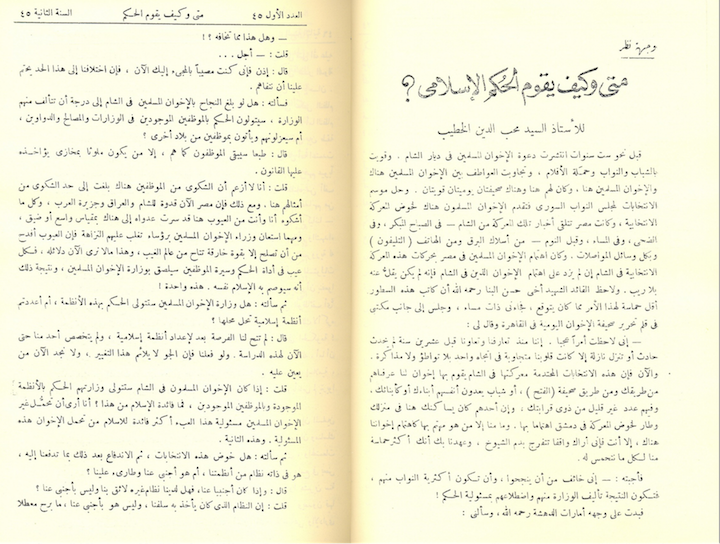 وجهة نظر
متى وكيف يقوم الحُكم الإسلامى ؟
للأستاذ السيد محب الدين الخطيب
قبل نحو ست سنوات انتشرت دعوة الإخوان المسلمين فى ديار الشام . وقويت
بالشباب والنواب وحملة الأقلام ، وتجاوبت العواطف بين الإخوان المسلمين هناك
والإخوان المسلمين هنا ، وكان لهم هنا وهناك صحيفتان يوميتان قويتان . وحل موسم
الانتخابات لمجلس النواب السورى فتقدم الإخوان المسلمون هناك لخوض المعركة
الانتخابية ، وكانت مصر تتلقى أخبار تلك المعركة من الشام — فى الصباح البكر ، وفى
الضحى ، وفى المساء ، وقبل النوم — من أسلاك البرق ومن الهاتف ( التليفون )
وبكل وسائل المواصلات . وكان اهتمام الإخوان المسلمين فى مصر بحركات هذه المعركة
الانتخابية فى الشام إن لم يزد على اهتمام الإخوان الذين فى الشام فإنه لم يكن يقلّ عنه
بلا ريب . ولاحظ القائد الشهيد أخى حسن البنا رحمه الله أن كاتب هذه السطور
أقل حماسة لهذا الأمر مما كان يتوقع ، فجاءنى ذات مساء ، وجلس إلى جانب مكتبى
فى قلم تحرير صحيفة الإخوان اليومية فى القاهرة وقال لى :
— إنى لاحظت أمراً عجيبا . إننا منذ تعارفنا وتعاونا قبل عشرين سنة لم يحدث
حادث أو تنزل نازلة إلا كانت قلوبنا متجاوبة فى اتجاه واحد بلا تواطؤ ولا مذاكرة .
والآن فإن هذه الانتخابات المحتدمة معركتها فى الشام يقوم بها إخوان لنا عرفناهم
من طريقك ومن طريق صحيفة ( الفتح ) ، أو شباب يعدون أنفسهم أبناءك أو كأبنائك .
وفيهم عدد غير قليل من ذوى قرابتك ، وإن أحدهم كان يساكنك هنا فى منزلك
وطار لخوض المعركة فى دمشق اهتماما بها . وما منا إلا من هو مهتم بها كاهتمام إخواننا
هناك ، إلا أنت فإنى أراك واقفا تتفرج بدم الشيوخ ، وعهدنا بك أنك أكثر حماسة
منا لـكل ما نتحمس له .
فأجبته : — إنى خائف من أن ينجحوا ، وأن تـكون أكثرية النواب منهم ،
فتـكون النتيجة تأليف الوزارة منهم واضطلاعهم بمسئولية الحكم !
فبدت على وجهه أمارات الدهشة رحمه الله ، وسألنى :
العدد الأول ٤٥
متى وكيف يقوم الحـكم
السنة الثانية ٤٥
— وهل هذا مما تخافه ؟ !
قلت : — أجل . . .
قال : إذن فإنى كنت مصيباً بالمجىء إليك الآن ، فإن اختلافنا إلى هذا الحد يحتم
علينا أن نتفاهم .
فسألته : هل لو بلغ النجاح بالإخوان المسلمين فى الشام إلى درجة أن تتألف منهم
الوزارة ، سيتولون الحكم بالموظفين الموجودين فى الوزارات والمصالح والدواوين ،
أم سيعزلونهم ويأتون بموظفين من بلاد أخرى ؟
قال : طبعا سيبقى الموظفون كما هم ، إلا من يكون ملوثا بمخازى يؤاخـذه
عليها القانون .
قلت : أنا لا أزعم أن الشكوى من الموظفين هناك بلغت إلى حد الشكوى من
أمثالهم هنا . ومع ذلك فإن مصر الآن قدوة للشام والعراق وجزيرة العرب ، وكل ما
أشكوه أنا وأنت من العيوب هنا قد سرت عدواه إلى هناك بمقياس واسع أو ضيق ،
ومهما استعان وزراء الإخوان المسلمين برؤساء تغلب عليهم النزاهة فإن العيوب أفدح
من أن تصلح إلا بقوة خارقة تتاح من عالم الغيب ، وهذا مالا ترى الآن دلائله ، فـكل
عيب فى أداة الحكم وسيرة الموظفين سيلصق بوزارة الإخوان المسلمين ، ونتيجة ذلك
أنه سيوصم به الإسلام نفسه . هذه واحدة !
ثم سألته : هل وزارة الإخوان المسلمين ستتولى الحـكم بهذه الأنظمة ، أم أعددتم
أنظمة إسلامية تحل محلها ؟
قال : لم تتح لنا الفرصة بعد لإعداد أنظمة إسلامية ، ولم يتخصص أحد منا حتى
الآن لهذه الدراسة . ولو فعلنا فإن الجو لا يلائم هذا التغيير . ولا نجد الآن من
يعين عليه .
قلت : إذا كان الإخوان المسلمون فى الشام ستتولى وزارتهم الحـكم بالأنظمة
الموجودة وبالموظفين الموجودين ، فما فائدة الإسلام من هذا ؟ أنا أرى أن تحمّل غير
الإخوان المسلمين مسئولية هذا العبء أكثر فائدة للاسلام من تحمل الإخوان هذه
المسئولية . وهذه الثانية .
ثم سألته : هل خوض هذه الانتخابات ، ثم الاندفاع بعد ذلك بما تدفعنا إليه ،
هو فى ذاته نظام من أنظمتنا ، أم هو أجنبى عنا وطارىء علينا ؟
قال : وإذا كان أجنبيا عنا ، فهل لدينا نظام غيره لائق بنا وليس بأجنبى عنا ؟
قلت : إن النظام الذى كان يأخذ به سلفنا ، وليس هو بأجنبى عنا ، ما برح معطلا